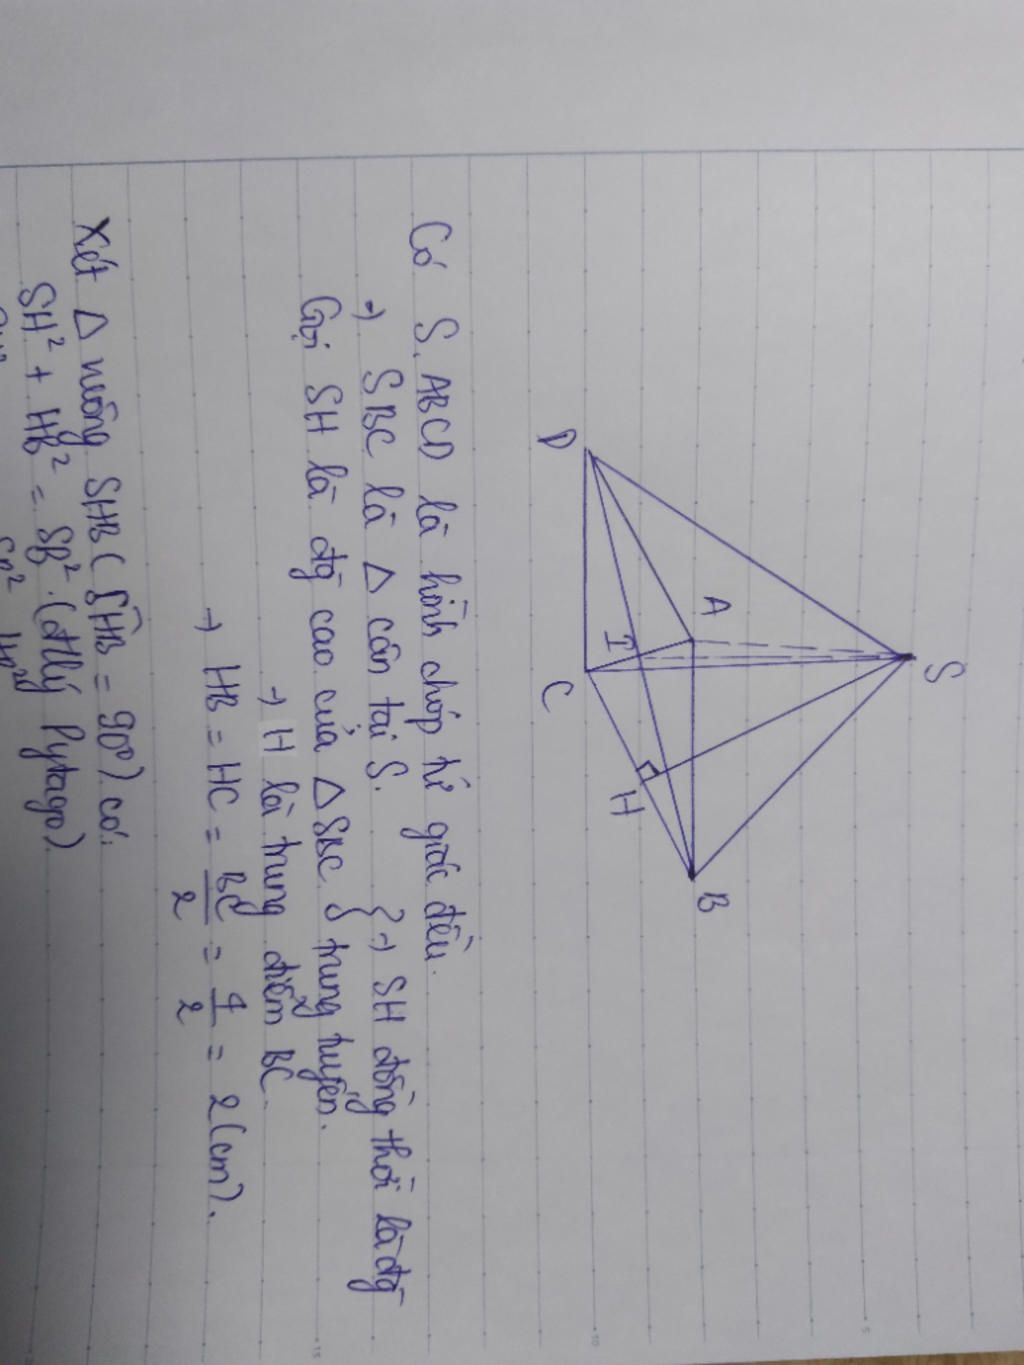 S
A
B
D
I
C
H
Có S.ABCD là hình chóp tứ giác đều.
→ SBC là △ cân tại S. } → SH đồng thời là đg
Gọi SH là đg cao của △SBC } trung tuyến.
→ H là trung điểm BC.
→ HB = HC = BC/2 = 4/2 = 2(cm).
Xét △ vuông SHB (SHB = 90°) có:
SH² + HB² = SB². (Đlý Pytago)